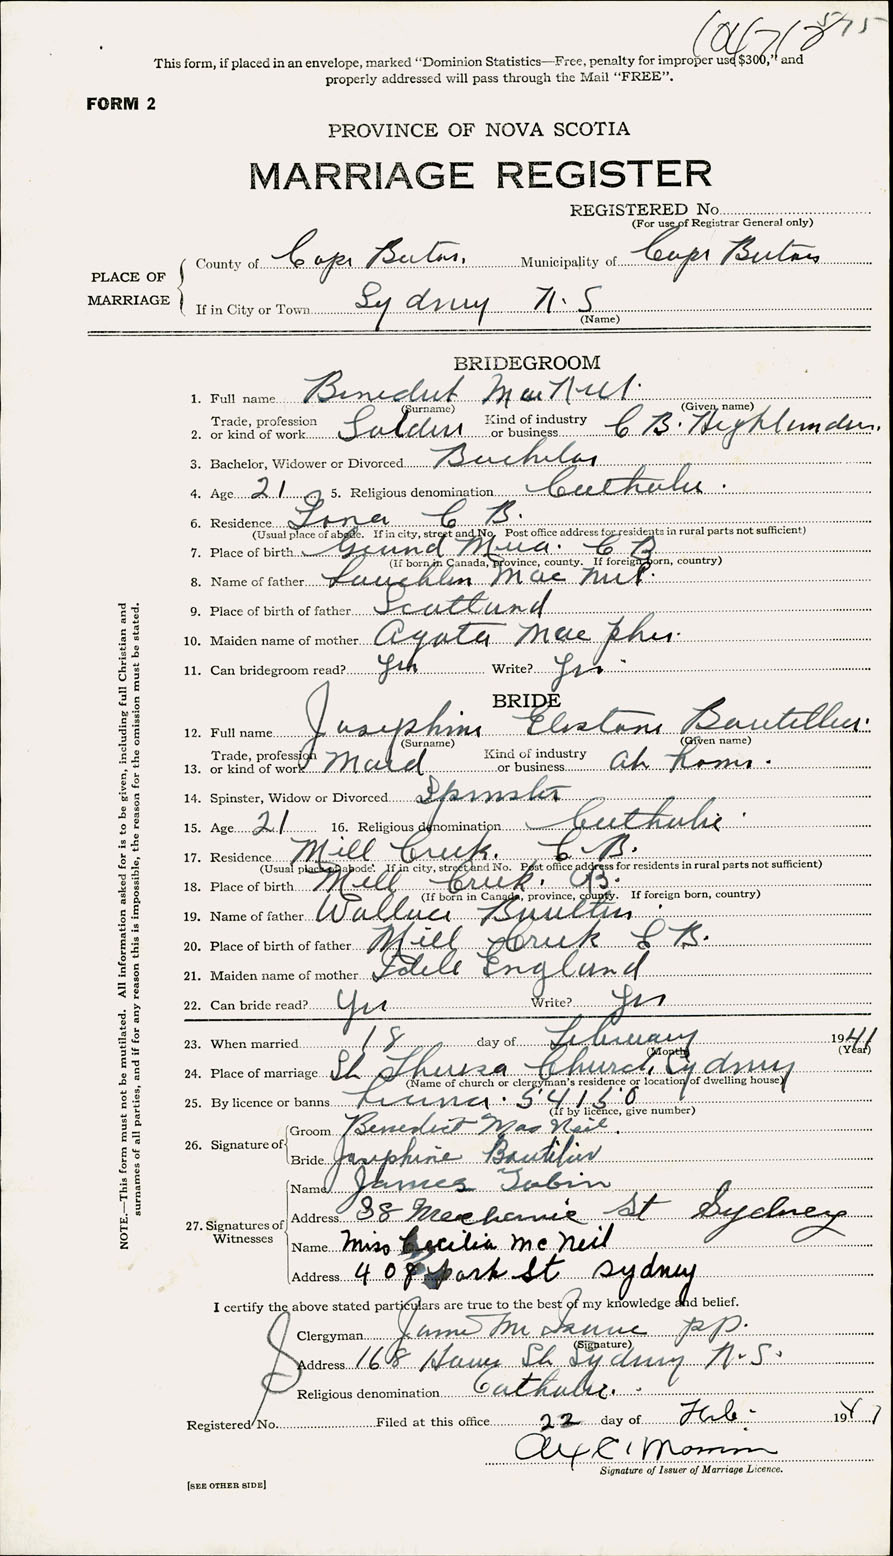 575
This form, if placed in an envelope, marked "Dominion Statistics—Free, penalty for improper use $300," and
properly addressed will pass through the Mail "FREE".
FORM 2
PROVINCE OF NOVA SCOTIA
MARRIAGE REGISTER
REGISTERED No.
(For use of Registrar General only)
PLACE OF MARRIAGE
County of Cape Breton. Municipality of Cape Breton
If in City or Town Sydney N.S
(Name)
BRIDEGROOM
1. Full name Benedict MacNeil.
(Surname) (Given name)
2. Trade, profession or kind of work Soldier Kind of industry or business C B. Highlanders.
3. Bachelor, Widower or Divorced Bachelor
4. Age 21 5. Religious denomination Catholic.
6. Residence Iona C B.
(Usual place of abode. If in city, street and No. Post office address for residents in rural parts not sufficient)
7. Place of birth Grand Mira. C B
(If born in Canada, province, county. If foreign born, country)
8. Name of father Lauchlin MacNeil.
9. Place of birth of father Scotland
10. Maiden name of mother Agata Mac phee.
11. Can bridegroom read? Yes Write? Yes.
BRIDE
12. Full name Josephine Boutillier.
(Surname) (Given name)
13. Trade, profession or kind of work Maid Kind of industry or business at home.
14. Spinster, Widow or Divorced Spinster
15. Age 21 16. Religious denomination Catholic.
17. Residence Mill Creek. C. B.
(Usual place of abode. If in city, street and No. Post office address for residents in rural parts not sufficient)
18. Place of birth Mill Creek. C.B.
(If born in Canada, province, county. If foreign born, country)
19. Name of father Wallace
20. Place of birth of father Mill Creek C B.
21. Maiden name of mother England
22. Can bride read? Yes Write? Yes
23. When married 18 day of February 1941
(Month) (Year)
24. Place of marriage St Theresa Church, Sydney
(Name of church or clergyman's residence or location of dwelling house)
25. By licence or banns Licence. 54150
(If by licence, give number)
26. Signature of
Groom Benedict MacNeil.
Bride Josephine Boutilier
27. Signatures of Witnesses
Name James Tobin
Address 38 Mechanic St Sydney
Name Miss Cecilia McNeil
Address 408 Park St Sydney
I certify the above stated particulars are true to the best of my knowledge and belief.
Clergyman pp.
(Signature)
Address 168 St Sydney N.S.
Religious denomination Catholic.
Registered No. Filed at this office 22 day of Feb. 1941
Signature of Issuer of Marriage Licence.
[SEE OTHER SIDE]
NOTE.—This form must not be mutilated. All information asked for is to be given, including full Christian and
surnames of all parties, and if for any reason this is impossible, the reason for the omission must be stated.